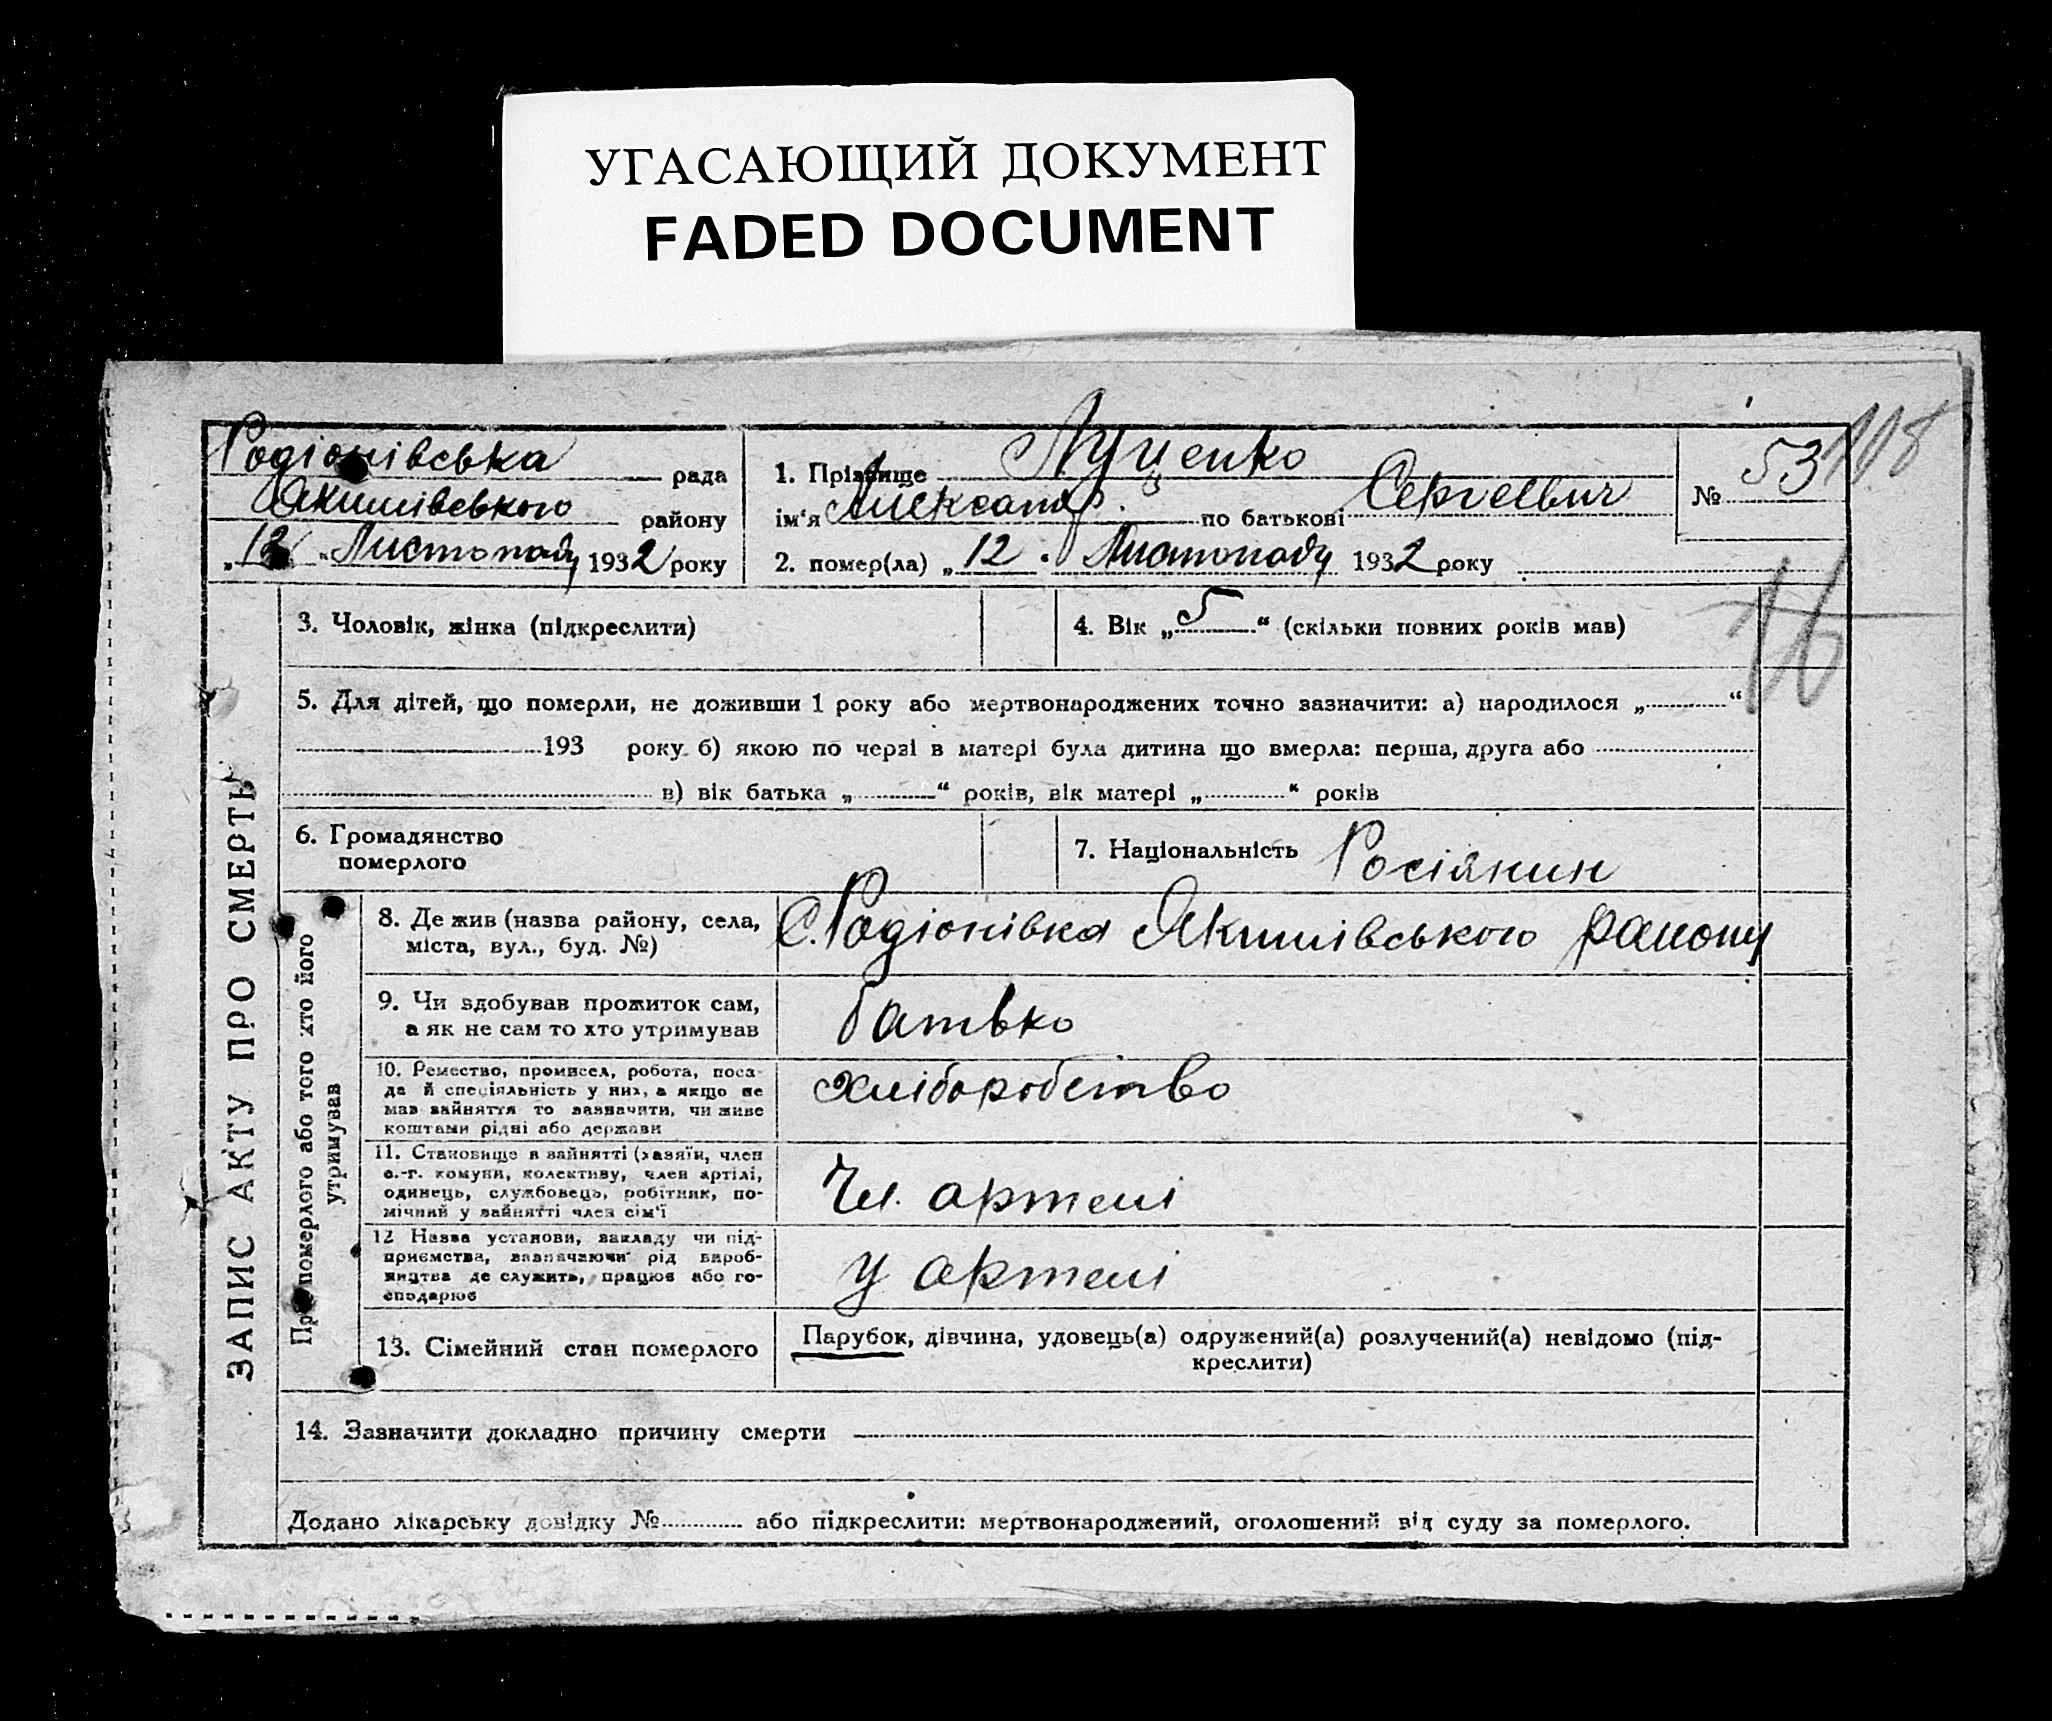 УГАСАЮЩИЙ ДОКУМЕНТ
FADED DOCUMENT
Родіонівська рада
Якимівського району
„ “ Листопаду 1932 року
1. Прізвище Луценко
ім'я Александр. по батькові Сергеевич
2. помер(ла) „12 “ Листопаду 1932 року
№ 53
118
16
ЗАПИС АКТУ ПРО СМЕРТЬ
3. Чоловік, жінка (підкреслити)
4. Вік „5“ (скільки повних років мав)
5. Для дітей, що померли, не доживши 1 року або мертвонароджених точно зазначити: а) народилося „ “
193 року б) якою по черзі в матері була дитина що вмерла: перша, друга або
в) вік батька „ “ років, вік матері „ “ років
6. Громадянство
померлого
7. Національність Росіянин
Про померлого або того хто його
утримував
8. Де жив (назва району, села,
міста, вул., буд. №)
С. Родіонівка Якимівського району
9. Чи здобував прожиток сам,
а як не сам то хто утримував
батько
10. Ремество, промисел, робота, поса-
да й спеціяльність у них, а якщо не
мав зайняття то зазначити, чи живе
коштами рідні або держави
хліборобство
11. Становище в зайнятті (хазяїн, член
с.-г. комуни, колективу, член артілі,
одинець, службовець, робітник, по-
мічний у зайнятті член сім'ї
Чл. артелі
12 Назва установи, закладу чи під-
приємства, зазначаючи рід вироб-
ництва де служить, працює або го-
сподарює
У артелі
13. Сімейний стан померлого
Парубок, дівчина, удовець(а) одружений(а) розлучений(а) невідомо (під-
креслити)
14. Зазначити докладно причину смерти
Додано лікарську довідку № або підкреслити: мертвонароджений, оголошений від суду за померлого.